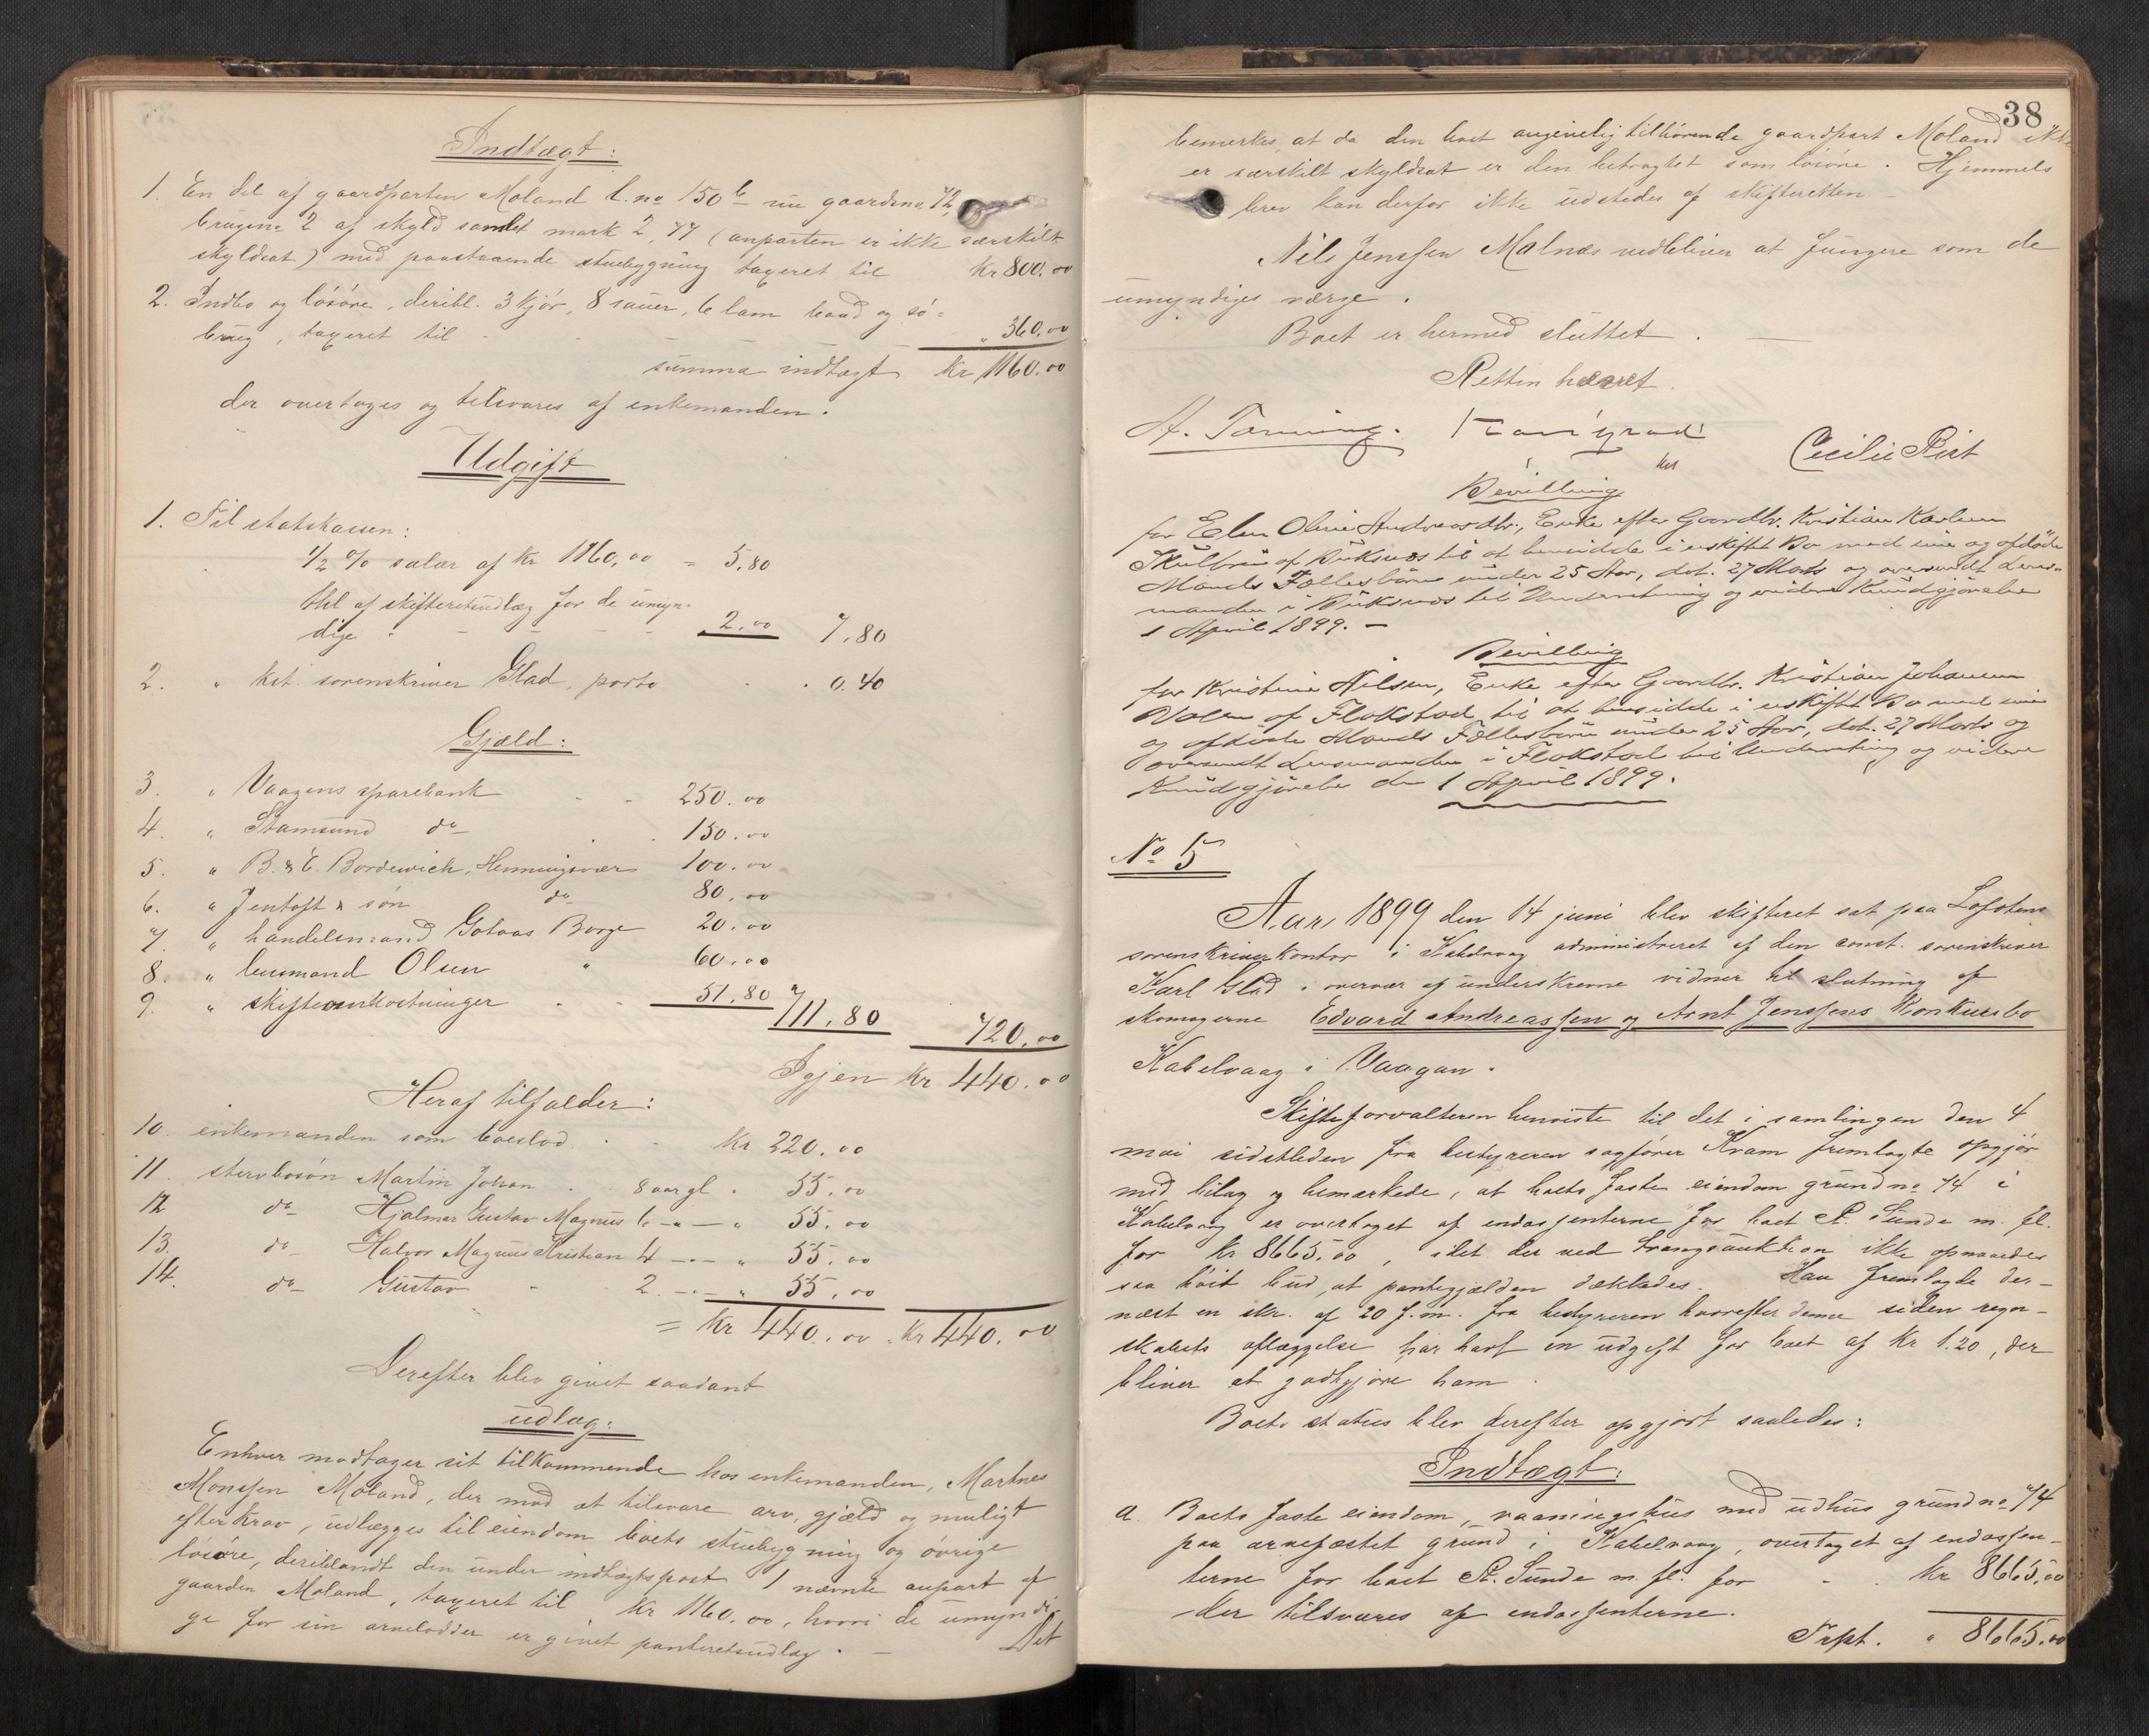 Indtægt:
1. En del af gaardparten Moland l.no 150b nu gaardsno 72,
brugsno 2 af skyld samlet mark 2,77 (anparten er ikke særskilt
skyldsat) med paastaaende stuebygning taxeret til Kr 800.00
2. Indbo og løsøre, deribl. 3 kjør, 8 sauer, 6 lam baad og sø=
brug, taxeret til - - - " 360.00
summa indtægt Kr 1160.00
der overtages og tilsvares af enkemanden.
Udgift
1. Til statskassen:
1/2 % salær af Kr 1160,00 = 5,80
thl. af skifteretsudlæg for de umyn-
dige - - - - 2.00 7,80
2. " kst. sorenskriver Glad, porto . . 0.40
Gjæld:
3. " Vaagens sparebank - - 250.00
4. " Stamsund do . . 150.00
5. " B. & C. Bordewich, Henningsvær 100.00
6. " Jentoft & søn do 80.00
7. " handelsmand Gotaas Borge 20.00
8. " lensmand Olsen " 60.00
9. " skifteomkostninger . . 51.80 711.80 720.00
Igjen Kr 440.00
Heraf tilfalder:
10. enkemanden som boeslod . - Kr 220.00
11. stervbosøn Martin Johan . 8 aar gl. " 55.00
12 do Hjalmar Gustav Magnus 6 -"- " 55.00
13. do Halvor Magnus Kristian 4 -"- " 55.00
14. do Gustav - 2. -"- " 55.00
= Kr 440.00 . Kr 440.00
Derefter blev givet saadant
udlæg:
Enhver modtager sit tilkommende hos enkemanden, Martnes
Monssen Moland, der mod at tilsvare arv, gjæld og muligt
efterkrav, udlægges til eiendom boets stuebygning og øvrige
løsøre, deriblandt den under indtægtspost 1 nævnte anpart af
gaarden Moland, taxeret til Kr 1160.00, hvori de umyndi-
ge for sin arvelodder er givet panteretsudlæg. - Det
38
bemerkes, at da den boet angivelig tilhørende gaardpart Moland ikke
er særskilt skyldsat er den betragtet som løsøre. Hjemmels
brev kan derfor ikke udstedes af skifteretten -
Nils Jenssen Malnæs vedbliver at fungere som de
umyndiges værge.
Boet er hermed sluttet.
Retten hævet.
A. Tønning. Karl Glad Cecilie Rist
kst
Bevilling
for Elen Oline Andreasdtr., Enke efter Gaardbr. Kristian Karlsen
Skulbru af Buksnæs til at hensidde i uskiftet Bo med sine og afdøde
Mands Fællesbørn under 25 Aar, dat. 27 Marts og oversendt Lens-
manden i Buksnæs til Underretning og videre Kundgjørelse
1 April 1899. -
Bevilling
for Kristine Nilsen, Enke efter Gaardbr. Kristian Johansen
Volen af Flakstad til at hensidde i uskiftet Bo med sine
og afdøde Mands Fællesbørn under 25 Aar, dat. 27 Marts og
oversendt Lensmanden i Flakstad til Underretning og videre
Kundgjørelse den 1 April 1899.
No 5
Aar 1899 den 14 juni blev skifteret sat paa Lofotens
sorenskriverkontor i Kabelvaag administreret af den const. sorenskriver
Karl Glad i overvær af underskrevne vidner til slutning af
skomagerne Edvard Andreassen og Arnt Jenssens Konkursbo
Kabelvaag i Vaagan.
Skifteforvalteren henviste til det i samlingen den 4
mai sidstleden fra bestyreren sagfører Kram fremlagte opgjør
med bilag og bemærkede, at boets faste eiendom grund no 74 i
Kabelvaag er overtaget af endossenterne for boet P. Sunde m. fl.
for Kr 8665.00, idet der ved tvangsauktion ikke opnaaedes
saa høit bud, at pantegjælden dækkedes. Han fremlagde der-
næst en skr. af 20 f. m. fra bestyreren hvorefter denne siden regn-
skabets aflæggelse har havt en udgift for boet af Kr 1.20, der
bliver at godtgjøre ham.
Boets status blev derefter opgjort saaledes:
Indtægt:
a. Boets faste eiendom, vaaningshus med udhus grund no 74
paa arvefæstet grund i Kabelvaag, overtaget af endossen-
terne for boet P. Sunde m. fl. for - . Kr 8665.00
der tilsvares af endossenterne.
Trspt. " 8665.00